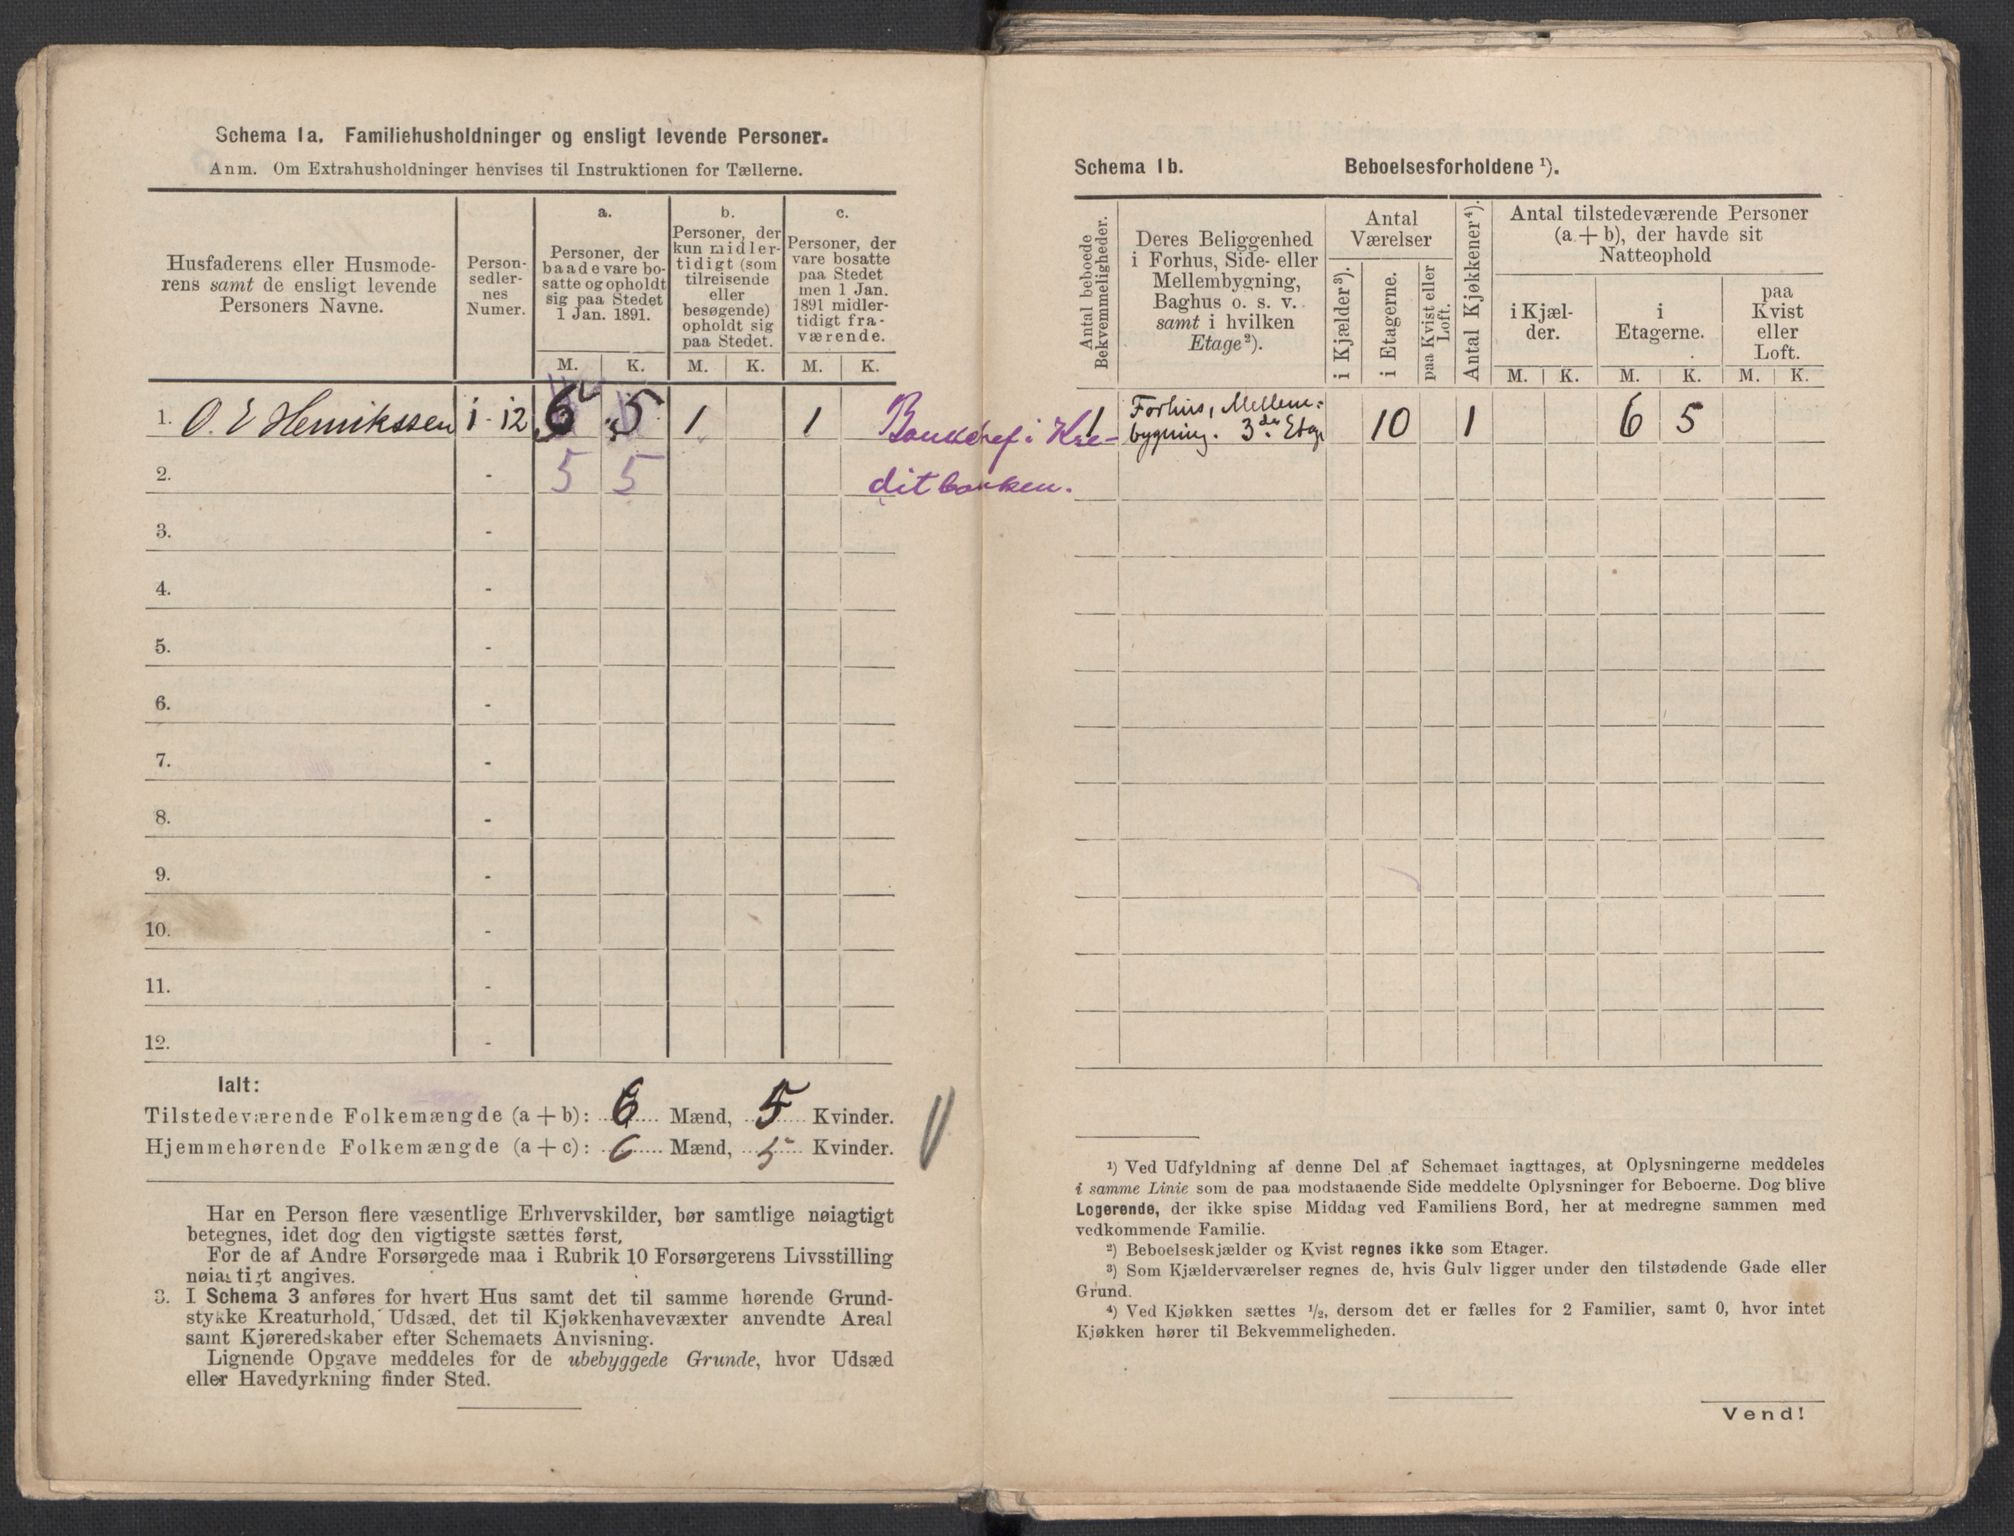 Schema 1a. Familiehusholdninger og ensligt levende Personer.
Anm. Om Extrahusholdninger henvises til Instruktionen for Tællerne.
Husfaderens eller Husmode-
rens samt de ensligt levende
Personers Navne.
Person-
sedler-
nes
Numer.
a.
Personer, der
baade vare bo-
satte og opholdt
sig paa Stedet
1 Jan. 1891.
b.
Personer, der
kun midler-
tidigt (som
tilreisende
eller
besøgende)
opholdt sig
paa Stedet.
c.
Personer, der
vare bosatte
paa Stedet
men 1 Jan.
1891 midler-
tidigt fra-
værende.
M. K. M. K. M. K.
1. O. E Henrikssen 1 - 12 6 5 1 1
2. - 5 5
Bankchef i Kre-
ditbanken.
3. -
4. -
5. -
6. -
7. -
8. -
9. -
10. -
11. -
12. -
Ialt:
Tilstedeværende Folkemængde (a + b): 6 Mænd, 5 Kvinder.
Hjemmehørende Folkemængde (a + c): 6 Mænd, 5 Kvinder.
Har en Person flere væsentlige Erhvervskilder, bør samtlige nøiagtigt
betegnes, idet dog den vigtigste sættes først.
For de af Andre Forsørgede maa i Rubrik 10 Forsørgerens Livsstilling
nøiagtigt angives.
3. I Schema 3 anføres for hvert Hus samt det til samme hørende Grund-
stykke Kreaturhold, Udsæd, det til Kjøkkenhavevæxter anvendte Areal
samt Kjøreredskaber efter Schemaets Anvisning.
Lignende Opgave meddeles for de ubebyggede Grunde, hvor Udsæd
eller Havedyrkning finder Sted.
Schema 1b. Beboelsesforholdene ¹).
Antal beboede
Bekvemmeligheder.
Deres Beliggenhed
i Forhus, Side- eller
Mellembygning,
Baghus o. s. v.
samt i hvilken
Etage²).
Antal
Værelser
i Kjælder³).
i Etagerne.
paa Kvist eller
Loft.
Antal Kjøkkener⁴).
Antal tilstedeværende Personer
(a + b), der havde sit
Natteophold
i Kjæl-
der.
i
Etagerne.
paa
Kvist
eller
Loft.
M. K. M. K. M. K.
1 Forhus, Mellem- 10 1 6 5
bygning. 3de Etage
¹) Ved Udfyldning af denne Del af Schemaet iagttages, at Oplysningerne meddeles
i samme Linie som de paa modstaaende Side meddelte Oplysninger for Beboerne. Dog blive
Logerende, der ikke spise Middag ved Familiens Bord, her at medregne sammen med
vedkommende Familie.
²) Beboelseskjælder og Kvist regnes ikke som Etager.
³) Som Kjælderværelser regnes de, hvis Gulv ligger under den tilstødende Gade eller
Grund.
⁴) Ved Kjøkken sættes ½, dersom det er fælles for 2 Familier, samt 0, hvor intet
Kjøkken hører til Bekvemmeligheden.
Vend!